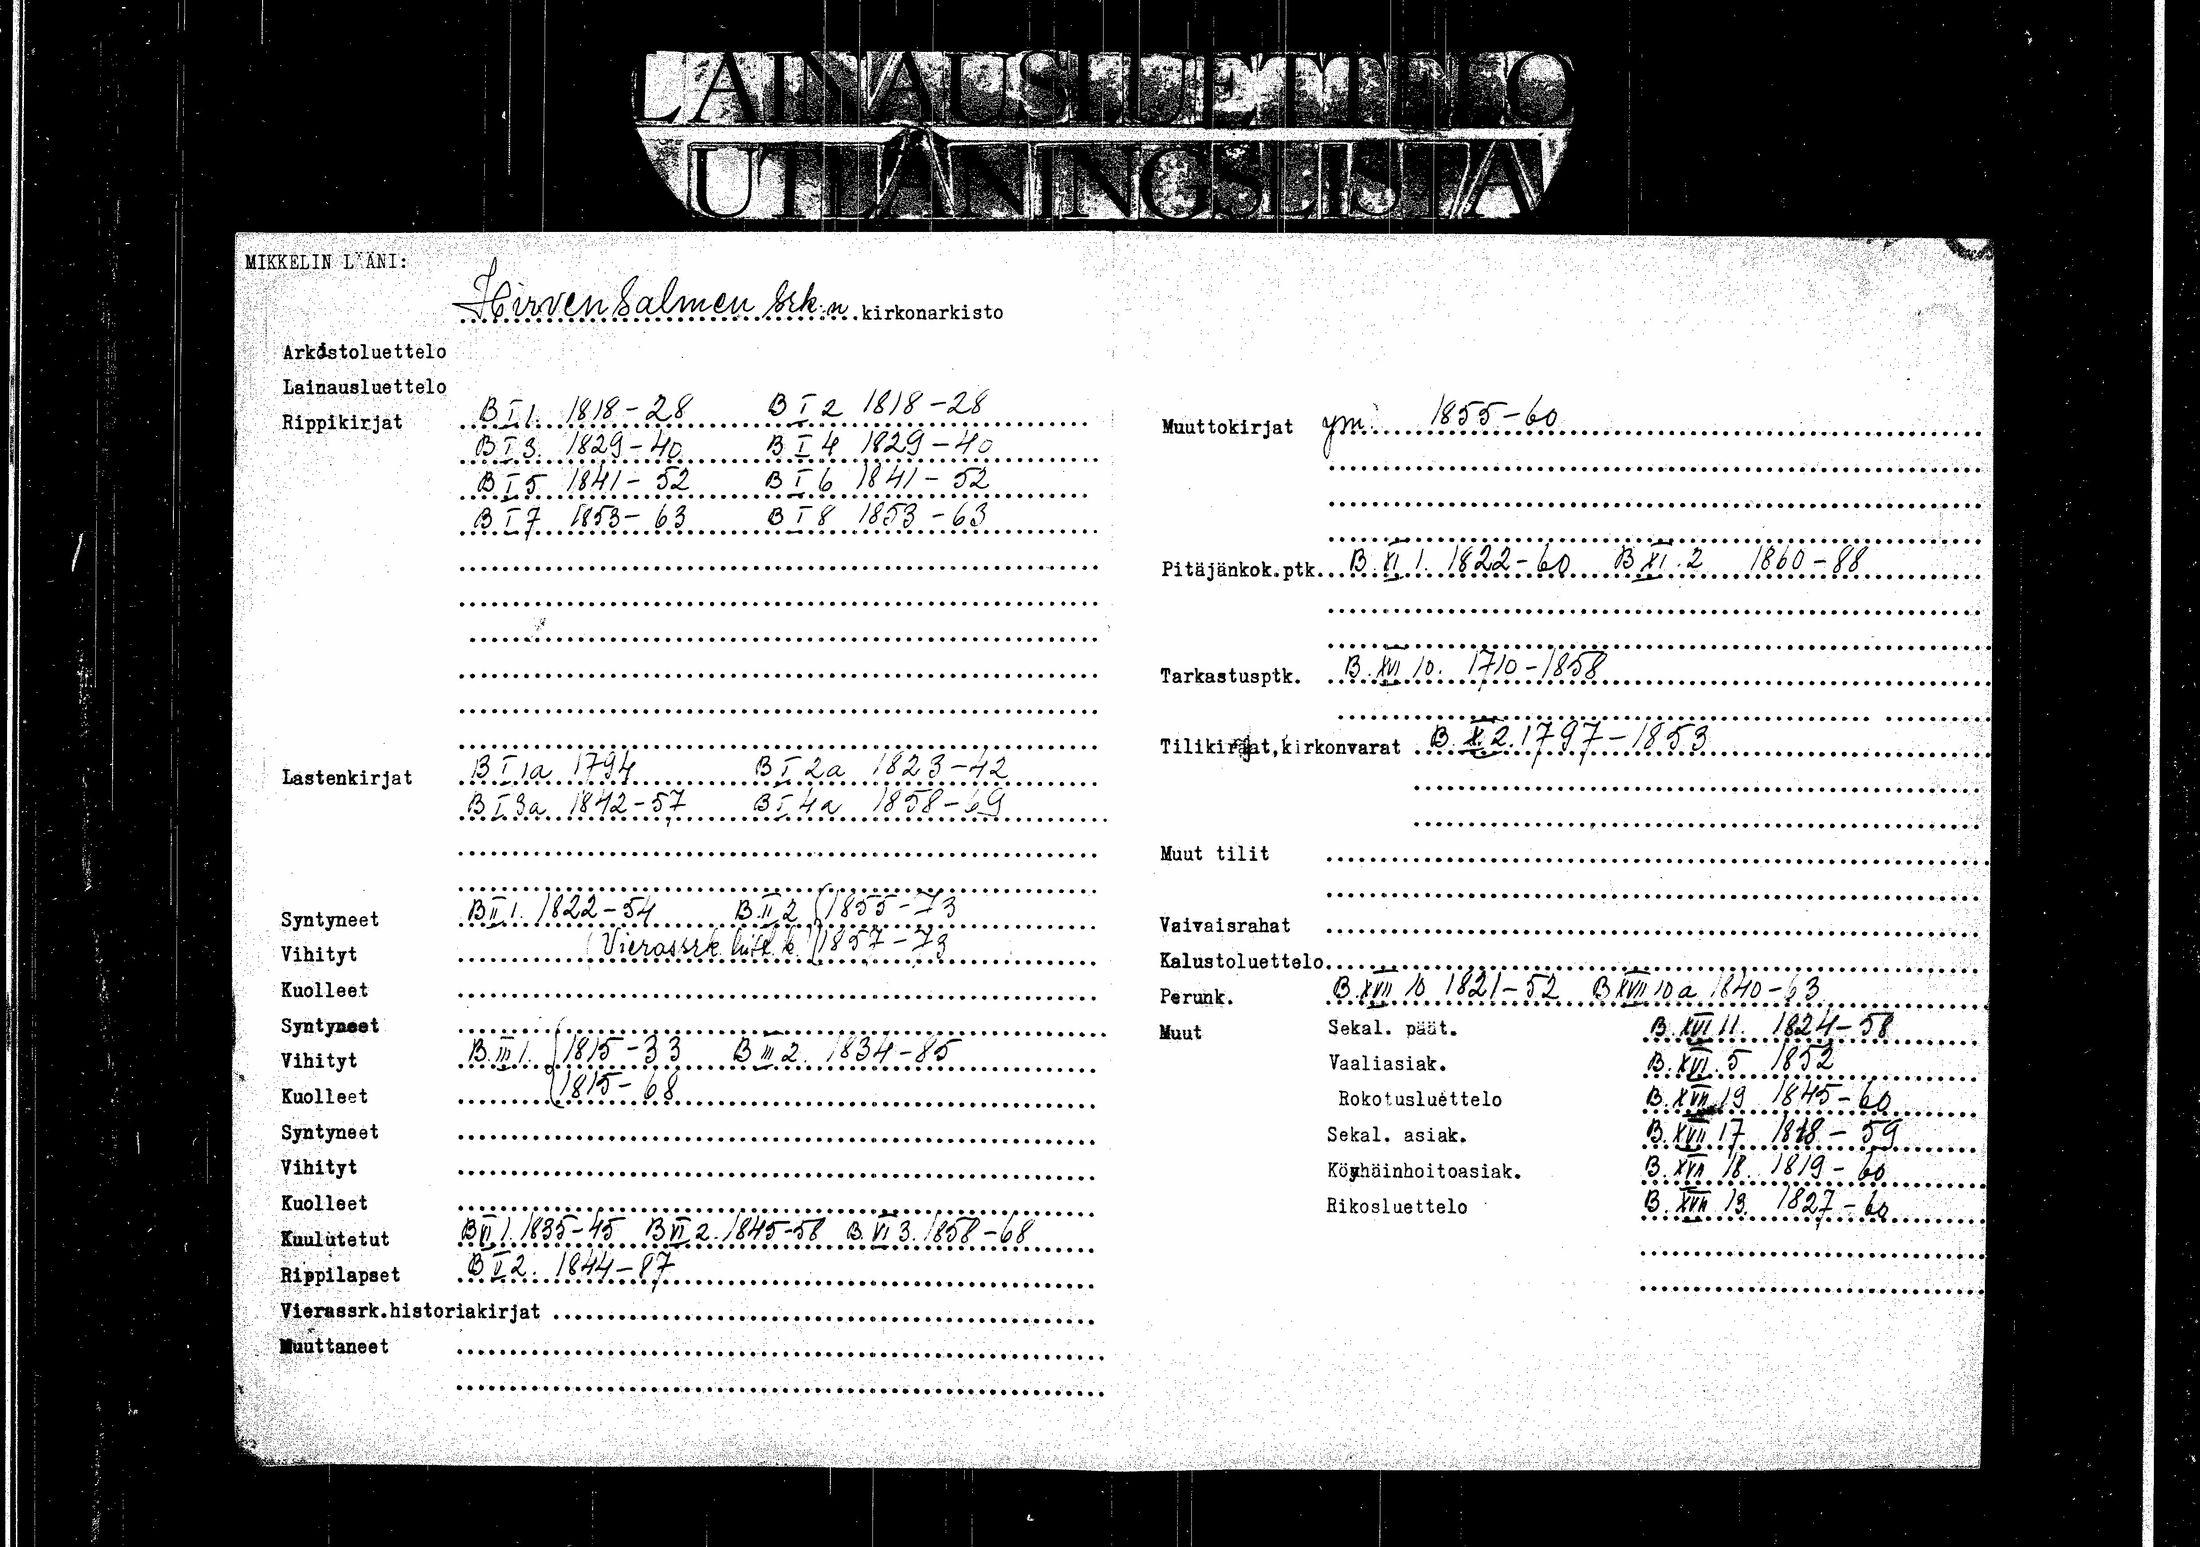 LAINAUSLUETTELO
UTLÅNINGSLISTA
MIKKELIN LÄÄNI:
Hirvensalmen srk:n kirkonarkisto
Arkistoluettelo
Lainausluettelo
Rippikirjat B I 1. 1818-28 B I 2 1818-28
B I 3. 1829-40 B I 4 1829-40
B I 5 1841-52 B I 6 1841-52
B I 7 1853-63 B I 8 1853-63
Lastenkirjat B I 1a 1794 B I 2a 1823-42
B I 3a 1842-57 B I 4a 1858-69
Syntyneet B II 1. 1822-54 B II 2 (1855-73
Vihityt (Vierassrk. 1857-73
Kuolleet
Syntyneet
Vihityt B III 1. (1815-33 B III 2. 1834-85
Kuolleet 1815-68
Syntyneet
Vihityt
Kuolleet
Kuulutetut B VI 1. 1835-45 B VI 2. 1845-58 B VI 3. 1858-68
Rippilapset B V 2. 1844-87
Vierassrk.historiakirjat
Muuttaneet
Muuttokirjat ym. 1855-60
Pitäjänkok.ptk. B XI 1. 1822-60 B XI. 2 1860-88
Tarkastusptk. B. XVI 10. 1710-1858
Tilikirjat,kirkonvarat B. X 2. 1797-1853
Muut tilit
Vaivaisrahat
Kalustoluettelo
Perunk. B. XVII 10 1821-52 B XVII 10a 1840-63
Muut Sekal. päät. B. XVI 11. 1824-58
Vaaliasiak. B. XVI. 5 1852
Rokotusluettelo B. XVII 19 1845-60
Sekal. asiak. B. XVII 17 1818-59
Köyhäinhoitoasiak. B. XVII 18. 1819-60
Rikosluettelo B. XVII 13. 1827-60